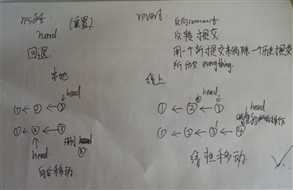 reset (重置)
head
回退
本地
head
① ← ② ← ③
① ← ② ← ③
head
head
向后移动
revert
反向commit
反转提交
用一个新提交来消除一个历史提交
所做的 everything.
线上
head
① ← ② ← ③
head
① ← ② ← ③ ← ④
往前移动